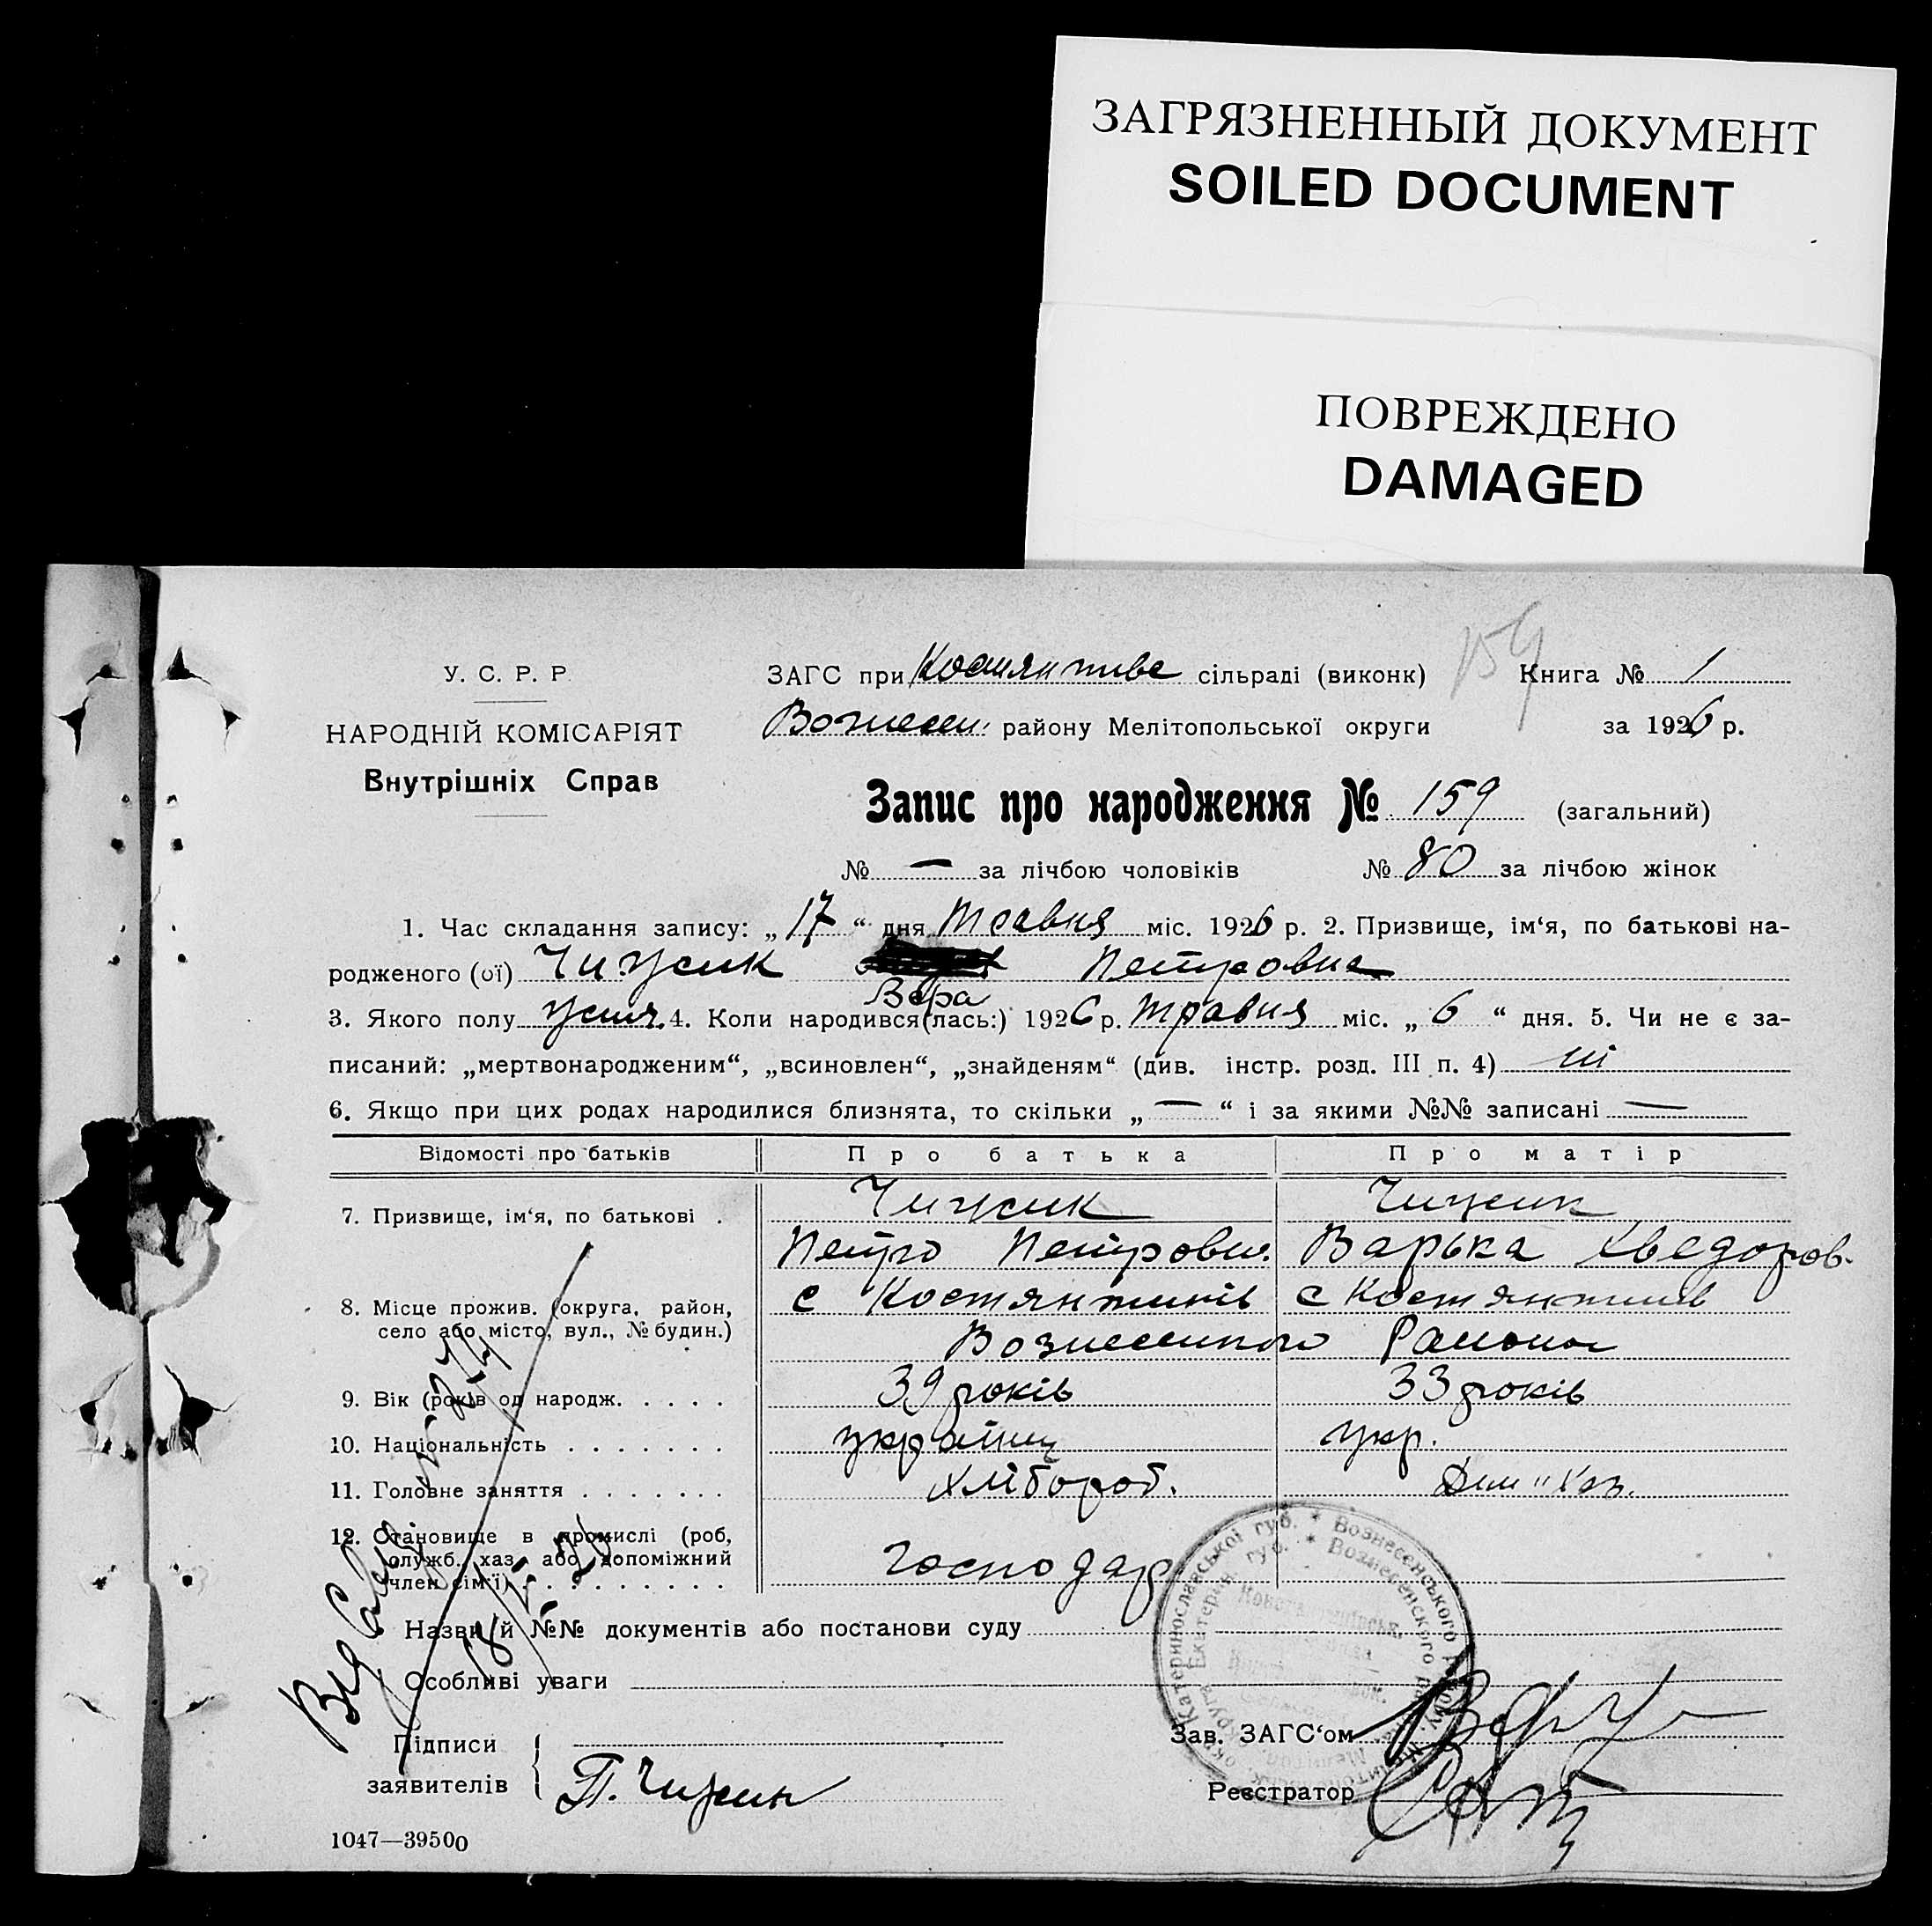 ЗАГРЯЗНЕННЫЙ ДОКУМЕНТ
SOILED DOCUMENT
ПОВРЕЖДЕНО
DAMAGED
159
У. С. Р. Р.
НАРОДНІЙ КОМІСАРІЯТ
Внутрішніх Справ
ЗАГС при Костянтиве сільраді (виконк) Книга № 1
Вознесен. району Мелітопольської округи за 1926 р.
Запис про народження № 159 (загальний)
№ — за лічбою чоловіків № 80 за лічбою жінок
1. Час складання запису: „17“ дня Травня міс. 1926 р. 2. Призвище, ім‘я, по батькові на-
родженого (ої) Чижик Петровна
Вера
3. Якого полу жіноч. 4. Коли народився(лась:) 1926 р. травня міс. „6“ дня. 5. Чи не є за-
писаний: „мертвонародженим“, „всиновлен“, „знайденям“ (див. інстр. розд. III п. 4) ні
6. Якщо при цих родах народилися близнята, то скільки „—“ і за якими №№ записані —
Відомості про батьків Про батька Про матір
7. Призвище, ім‘я, по батькові . Чижик Чижик
Петро Петрович. Варька Хведоров.
8. Місце прожив. (округа, район, с Костянтинів с Костянтинів
село або місто, вул., № будин.) Вознесенкого Района
9. Вік (років од народж. . . . . 39 років 33 років
10. Національність . . . . . . . українц укр.
11. Головне заняття . . . . . . . Хлібороб.
12. Становище в промислі (роб,
служб., хаз. або допоміжний
член сім‘ї) . . . . . . . . . господар
Назви й №№ документів або постанови суду
Особливі уваги
Підписи
заявителів П. Чижик
Зав. ЗАГС‘ом
Реєстратор
1047—39500